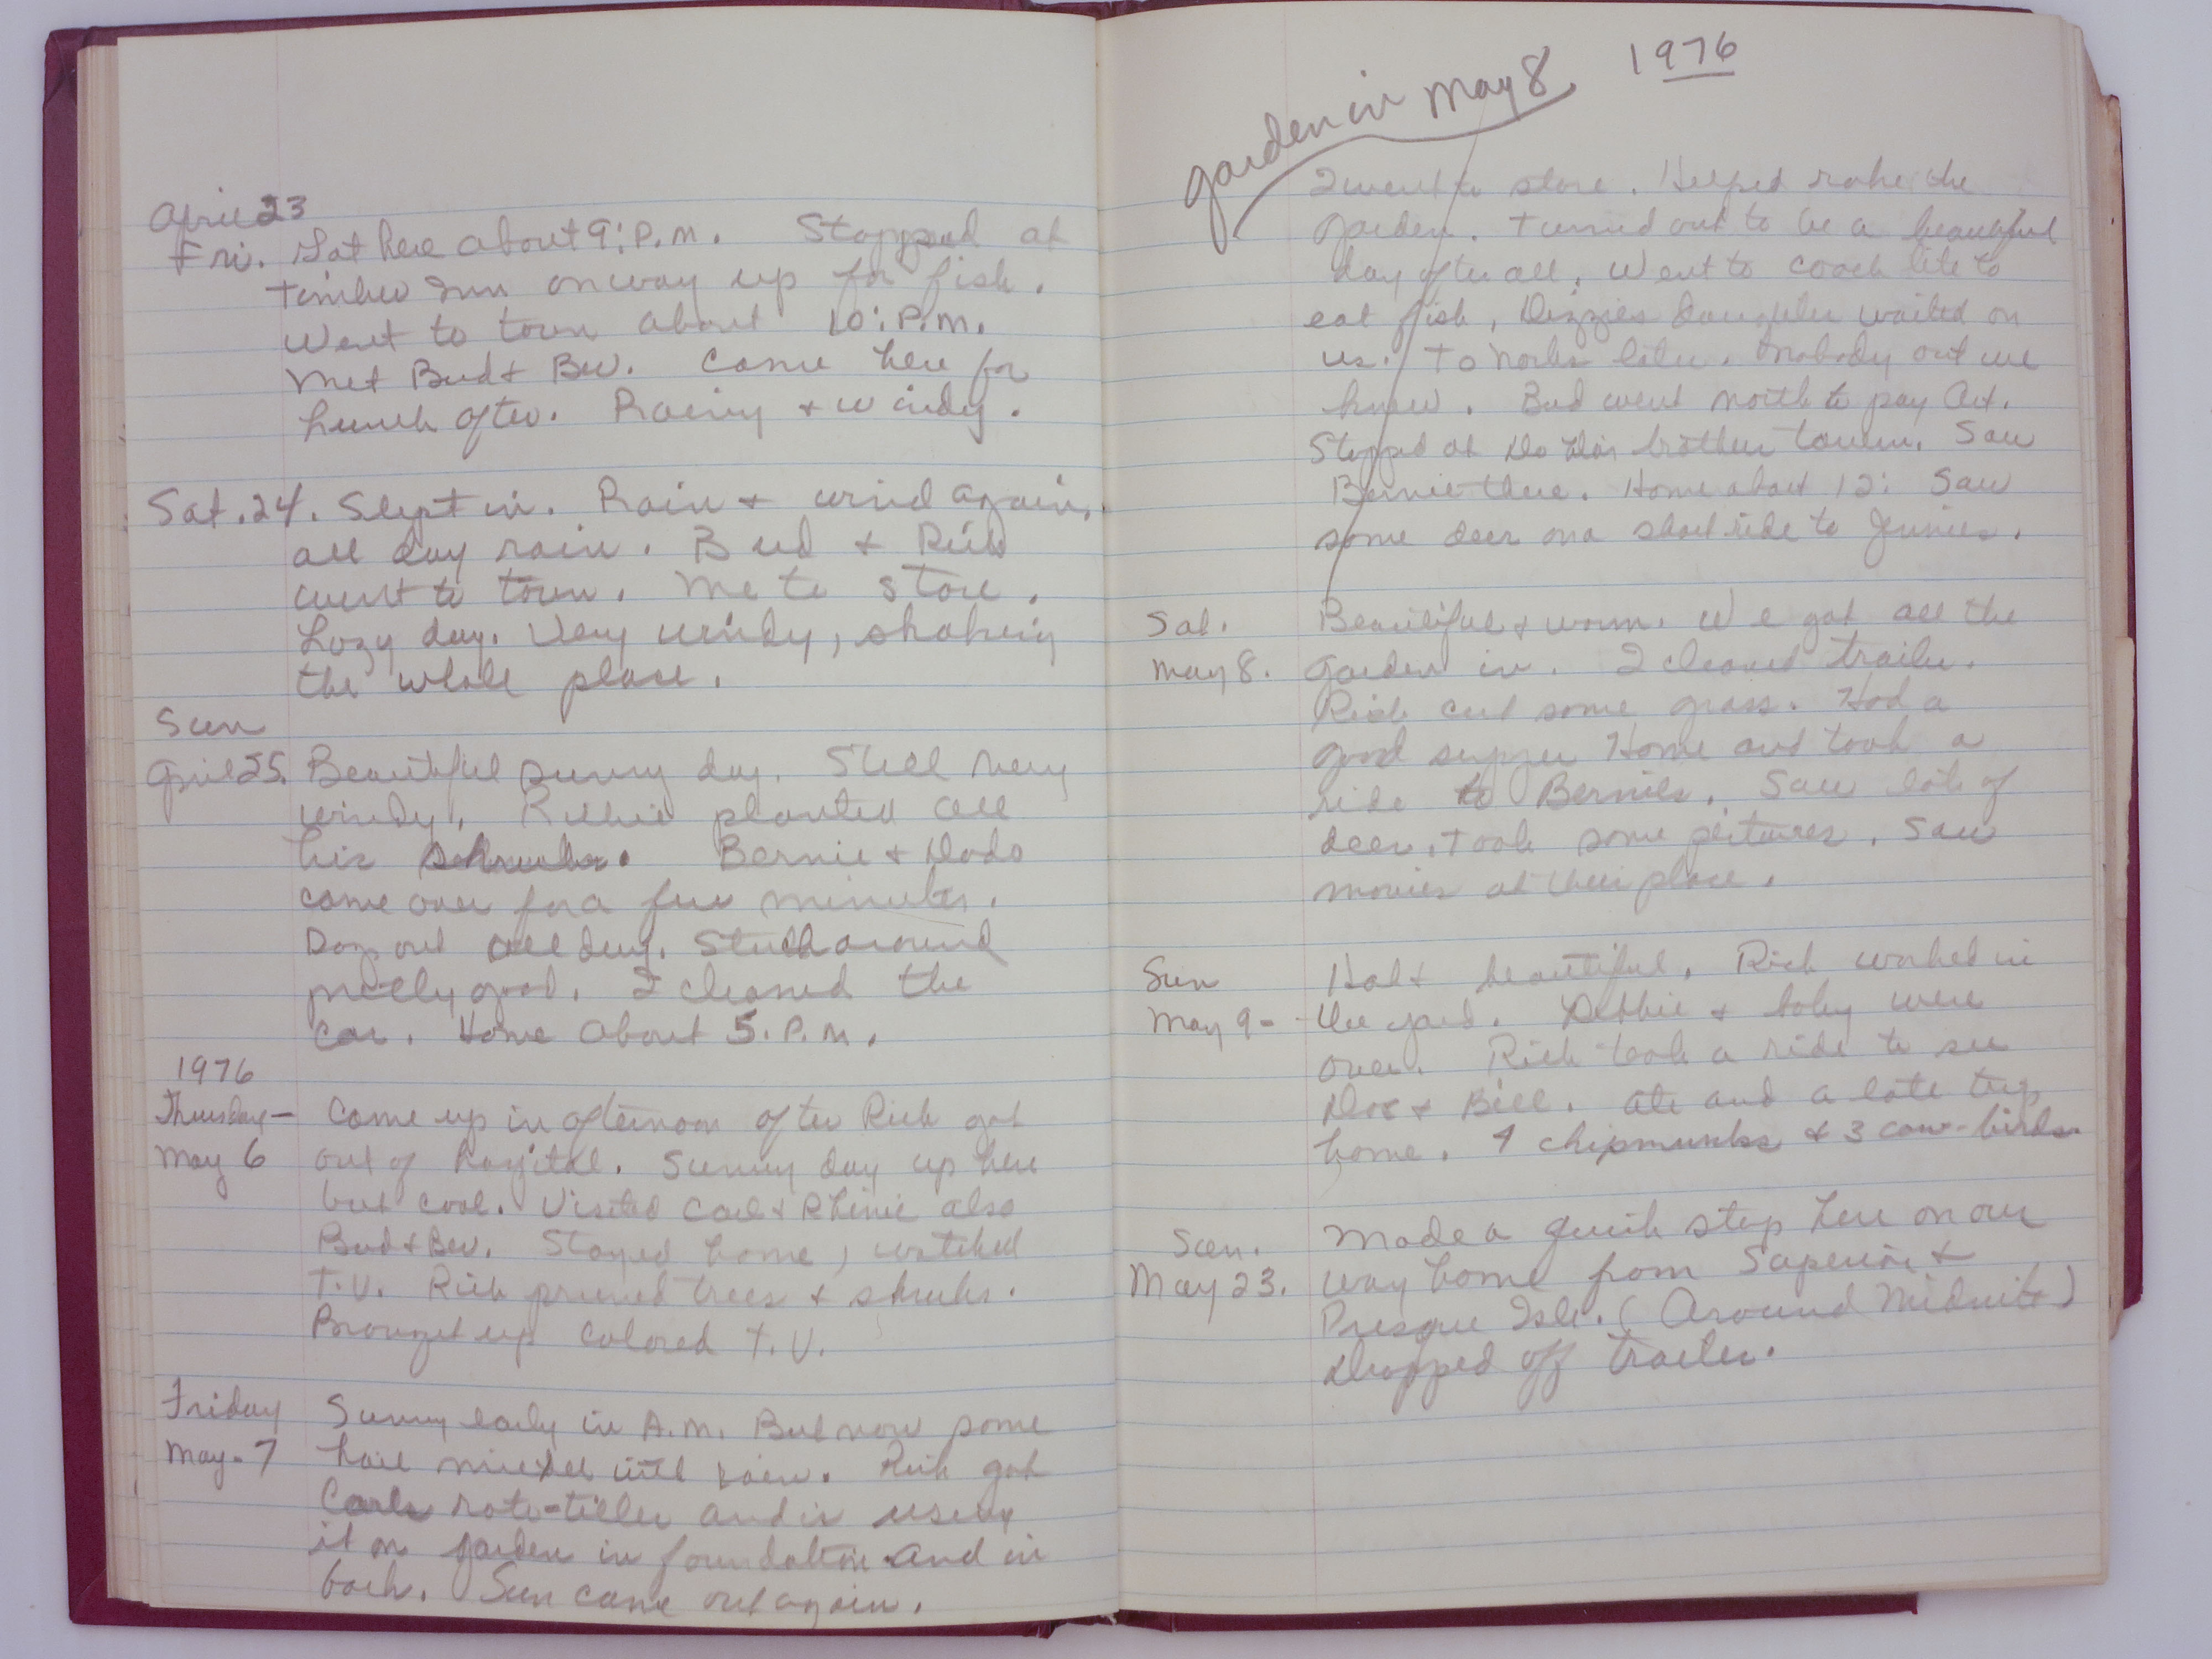 April 23
Fri. Got here about 9: P.M. Stopped at
Timber Inn on way up for fish.
Went to town about 10: P.M.
Met Bud & Bev. Came here for
lunch after. Rainy & windy.
Sat. 24. Slept in. Rain & wind again,
all day rain. Bud & Rich
went to town. Me to store.
Lazy day. Very windy, shaking
the whole place.
Sun
April 25. Beautiful sunny day. Still very
windy. Richie planted all
his shrubs. Bernie & Dodo
came over for a few minutes.
Dog out all day. Stuck around
pretty good. I cleaned the
car. Home about 5. P.M.
1976
Thursday— Came up in afternoon after Rich got
May 6 out of hospital. Sunny day up here
but cool. Visited Carl & also
Bud & Bev. Stayed home, watched
T.V. Rich pruned trees & shrubs.
Brought up colored T.V.
Friday Sunny early in A.M. But now some
May-7 hail mixed with rain. Rich got
Carls roto-tiller and is using
it on garden in foundation and in
back. Sun came out again.
garden in May 8 1976
I went to store. Helped rake the
garden. Turned out to be a beautiful
day after all. Went to Coach lite to
eat fish, Dizzies daughter waited on
us. To later. Nobody out we
knew. Bud went north to pay Art.
Stopped at brother tavern. Saw
Bernie there. Home about 12: Saw
some deer on a short ride to Jennies.
Sat. Beautiful & warm. We got all the
May 8. garden in. I cleaned trailer.
Rich cut some grass. Had a
good supper Home and took a
ride to Bernies. Saw lots of
deer. Took some pictures. Saw
movies at their place.
Sun Hot & beautiful. Rich worked in
May 9- the yard. Debbie & baby were
over. Rich took a ride to see
& Bill. Ate and a late trip
home. 4 chipmunks & 3 cow-birds.
Sun. Made a quick stop here on our
May 23. way home from Superior &
Presque Isle. (Around Midnite)
Dropped off trailer.